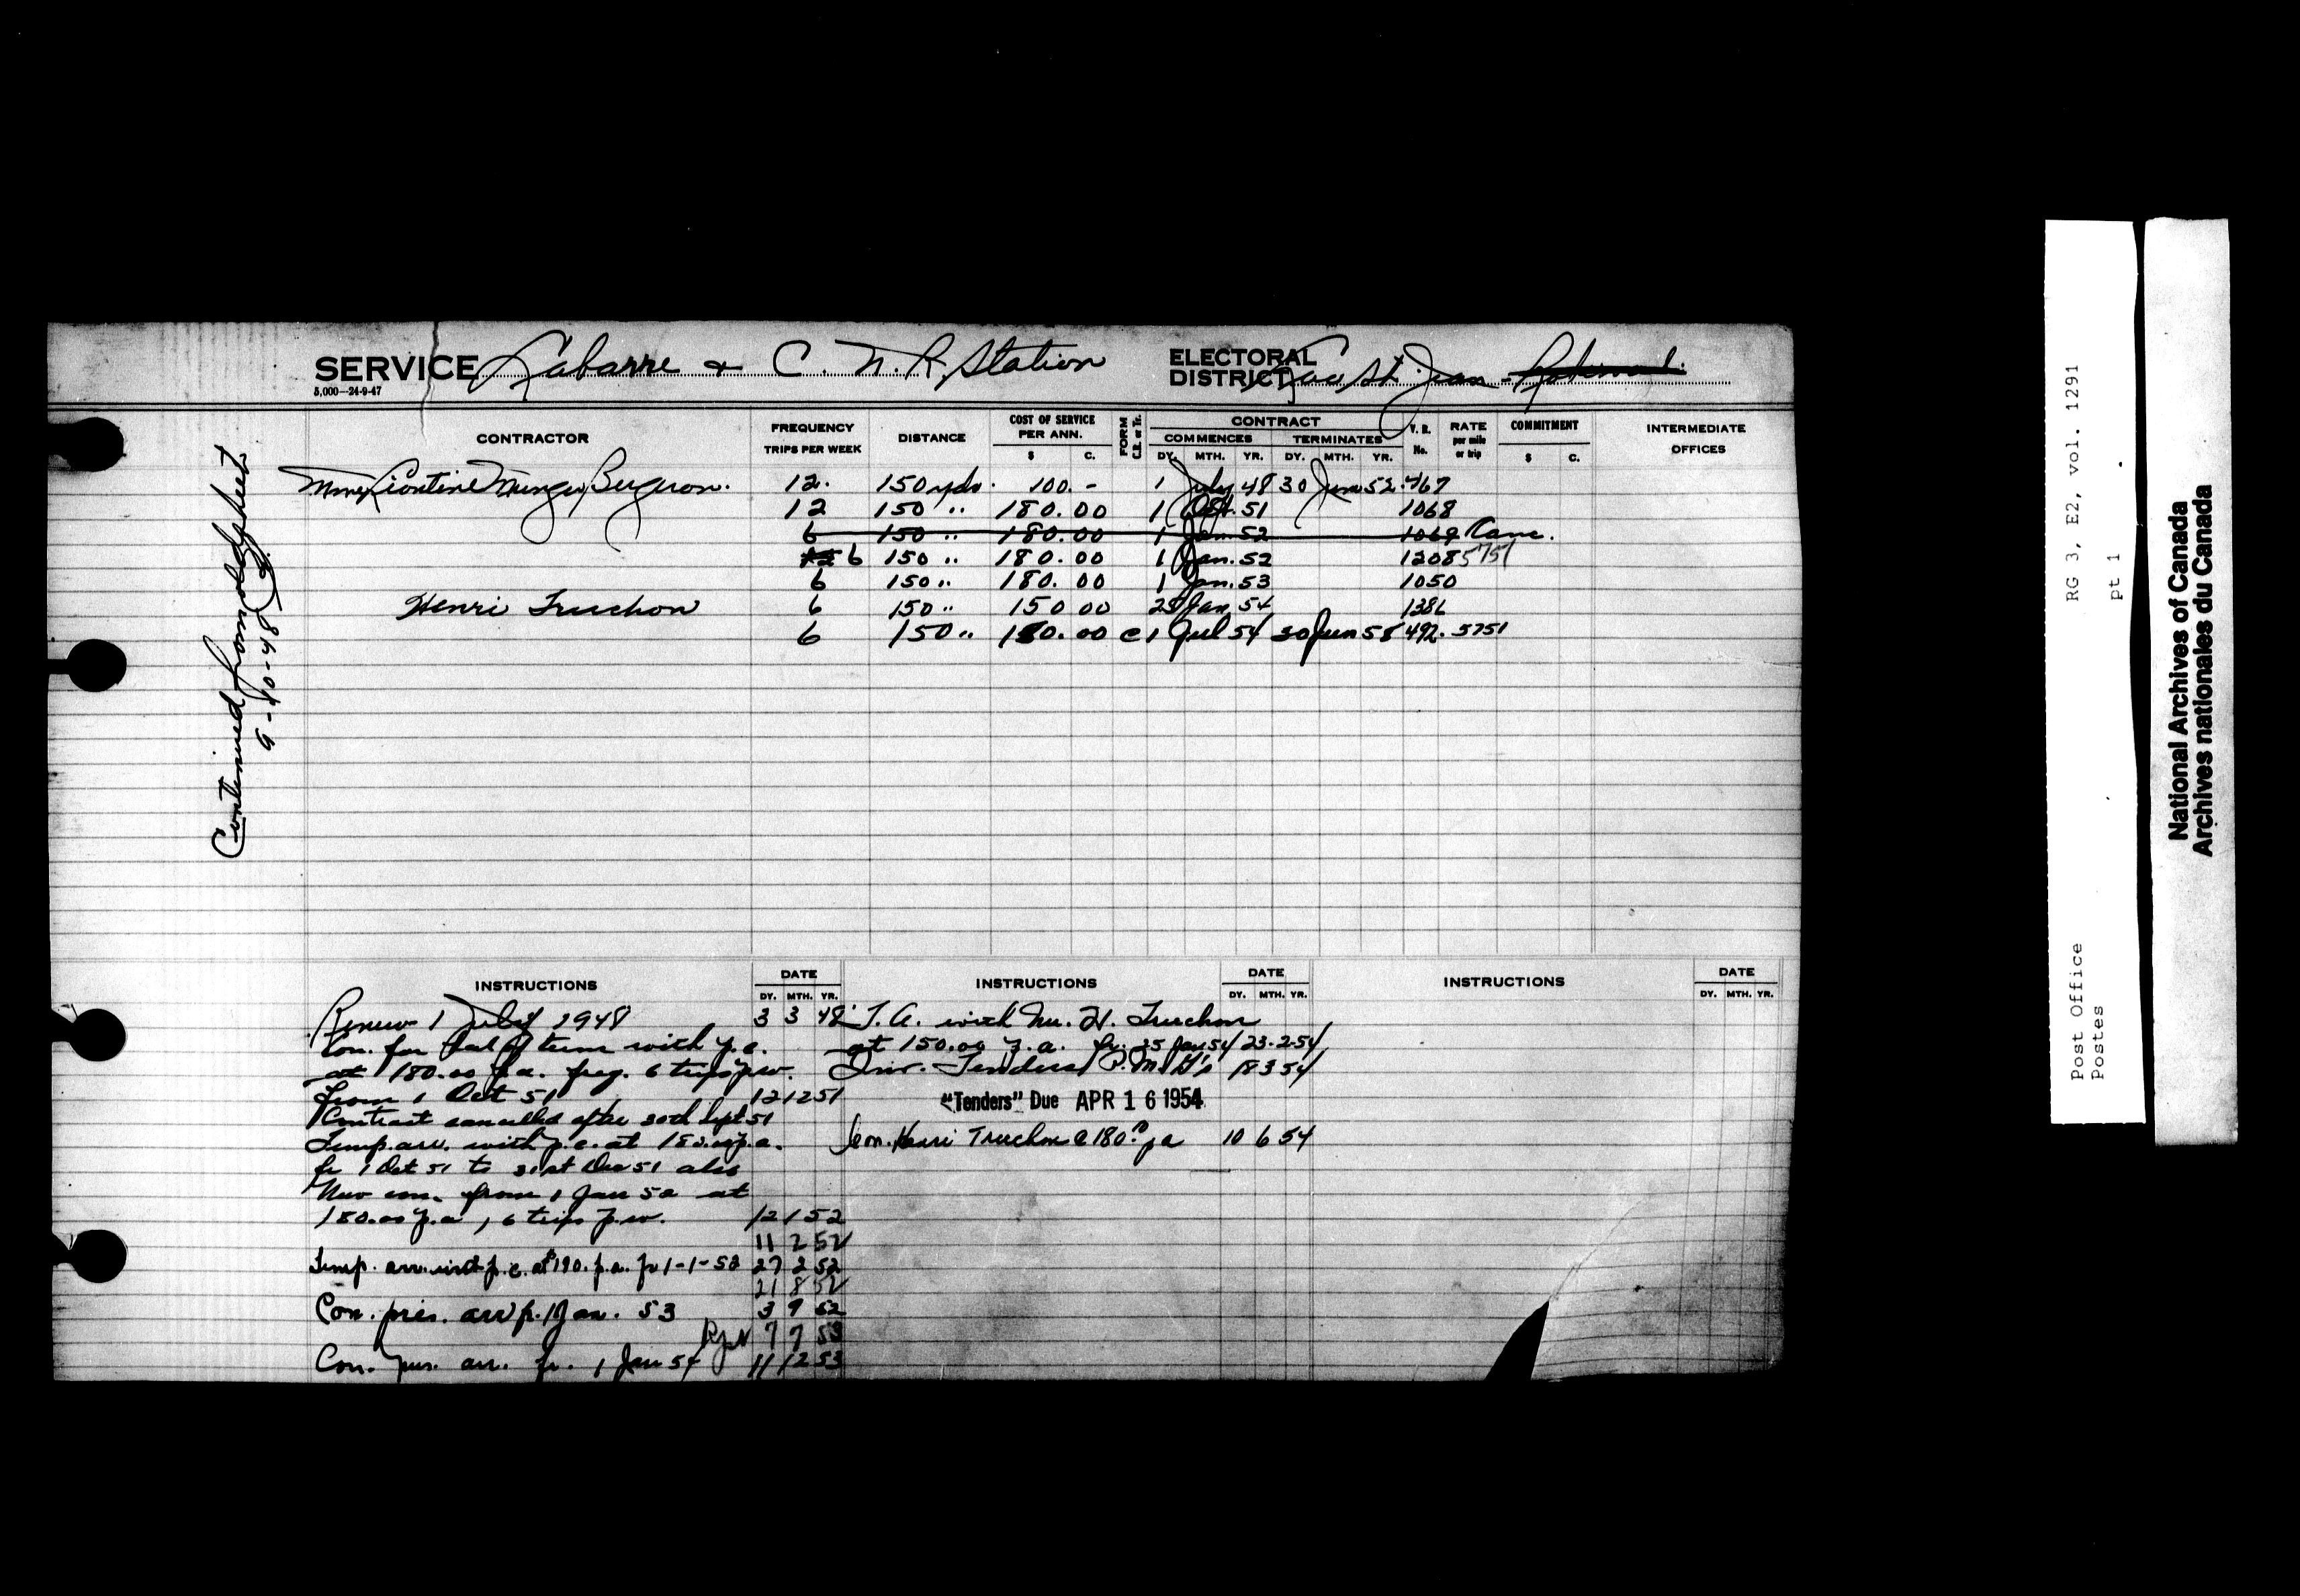 SERVICE Labarre & C. N. R. Station ELECTORAL DISTRICT Lac St. Jean - Roberval.
5,000—24-9-47
Continued from old sheet
9-10-48
CONTRACTOR FREQUENCY TRIPS PER WEEK DISTANCE COST OF SERVICE PER ANN. $ C. FORM C.B. or Tr. CONTRACT COMMENCES DY. MTH. YR. TERMINATES DY. MTH. YR. T.R. No. RATE per mile or trip COMMITMENT $ C. INTERMEDIATE OFFICES
Mme Bergeron. 12. 150 yds. 100.- 1 July 48 30 Jun 52 767
12 150 " 180.00 1 Oct. 51 1068
6 150 " 180.00 1 Jan 52 1069 Canc.
12 6 150 " 180.00 1 Jan. 52 1208 5751
6 150 " 180.00 1 Jan. 53 1050
Henri Truchon 6 150 " 150 00 25 Jan 54 1386
6 150 " 180.00 C 1 Jul 54 30 Jun 58 492. 5751
INSTRUCTIONS DATE DY. MTH. YR. INSTRUCTIONS DATE DY. MTH. YR. INSTRUCTIONS DATE DY. MTH. YR.
Renew 1 July 1948 3 3 48
Con. for bal of term with p.c.
at 180.00 p.a. freq. 6 trips p.w.
from 1 Oct 51 12 12 51
Contract cancelled after 30th Sept 51
Temp. arr. with p.c. at 180.00 p.a.
fr 1 Oct 51 to 31st Dec 51 also
New con. from 1 Jan 52 at
180.00 p.a, 6 trips p.w. 12 1 52
11 2 52
Temp. arr. with p.c. at 180. p.a. fr 1-1-52 27 2 52
21 8 52
Con. pres. arr fr. 1 Jan. 53 3 9 52
7 7 53
Con. pres. arr. fr. 1 Jan 54 11 12 53
T.A. with Mr. H. Truchon
at 150.00 p.a. fr. 25 Jan 54 23-2-54
Inv. Tenders P.M.G's 18 3 54
"Tenders" Due APR 16 1954
Con. Henri Truchon @ 180.00 pa 10 6 54
Post Office RG 3, E2, vol. 1291
Postes pt 1
National Archives of Canada
Archives nationales du Canada